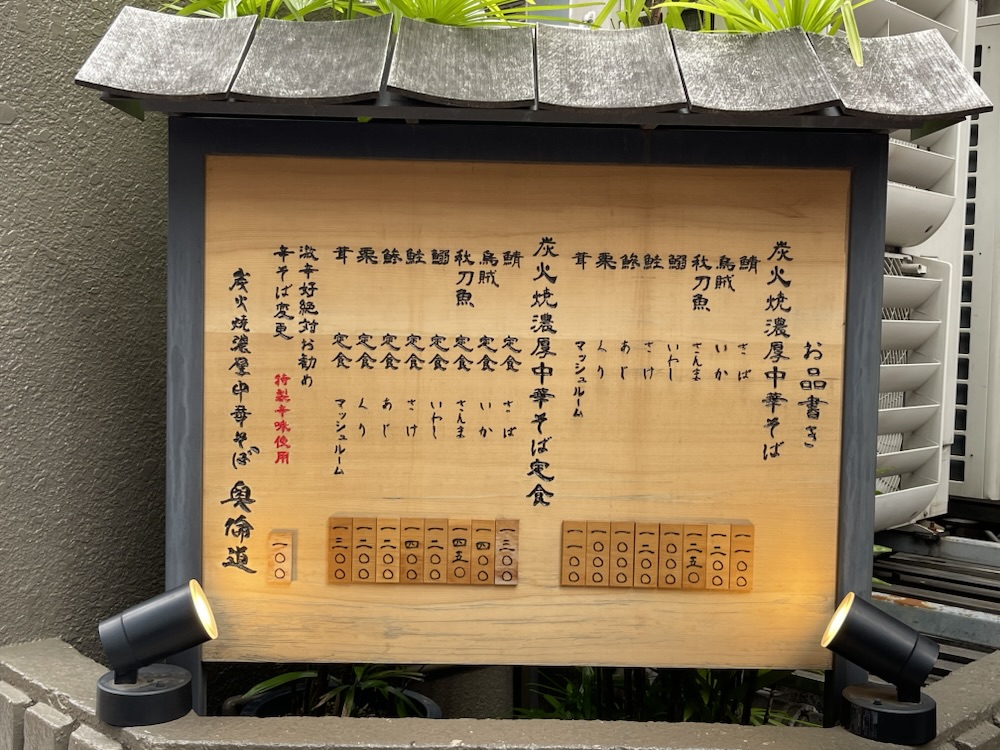 お品書き
炭火焼濃厚中華そば
鯖 さば 一一〇〇
烏賊 いか 一二〇〇
秋刀魚 さんま 一二五〇
鰯 いわし 一〇〇〇
鮭 さけ 一二〇〇
鯵 あじ 一〇〇〇
栗 くり 一〇〇〇
茸 マッシュルーム 一一〇〇
炭火焼濃厚中華そば定食
鯖 定食 さば 一三〇〇
烏賊 定食 いか 一四〇〇
秋刀魚 定食 さんま 一四五〇
鰯 定食 いわし 一二〇〇
鮭 定食 さけ 一四〇〇
鯵 定食 あじ 一二〇〇
栗 定食 くり 一二〇〇
茸 定食 マッシュルーム 一三〇〇
激辛好絶対お勧め
辛そば変更 特製辛味使用 一〇〇
炭火焼濃厚中華そば 奥倫道